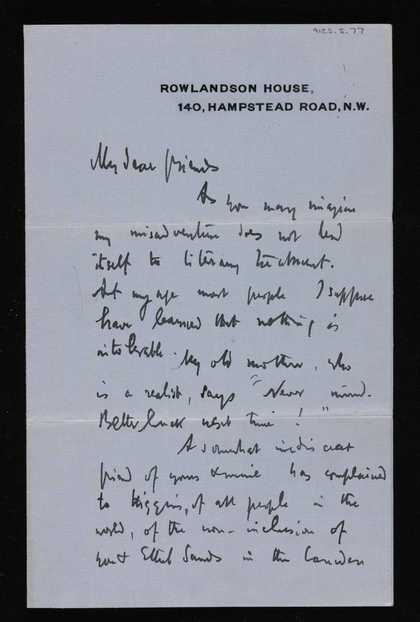 9125.5.77
ROWLANDSON HOUSE,
140, HAMPSTEAD ROAD, N.W.
My dear friends
As you may imagine
my misadventure does not lend
itself to literary treatment.
At my age most people I suppose
have learned that nothing is
intolerable. My old mother, who
is a realist, says "Never mind.
Better luck next time!"
A somewhat indiscreet
friend of yours & mine has complained
to Higgins, of all people in the
world, of the non-inclusion of
you & Ethel Sands in the Camden